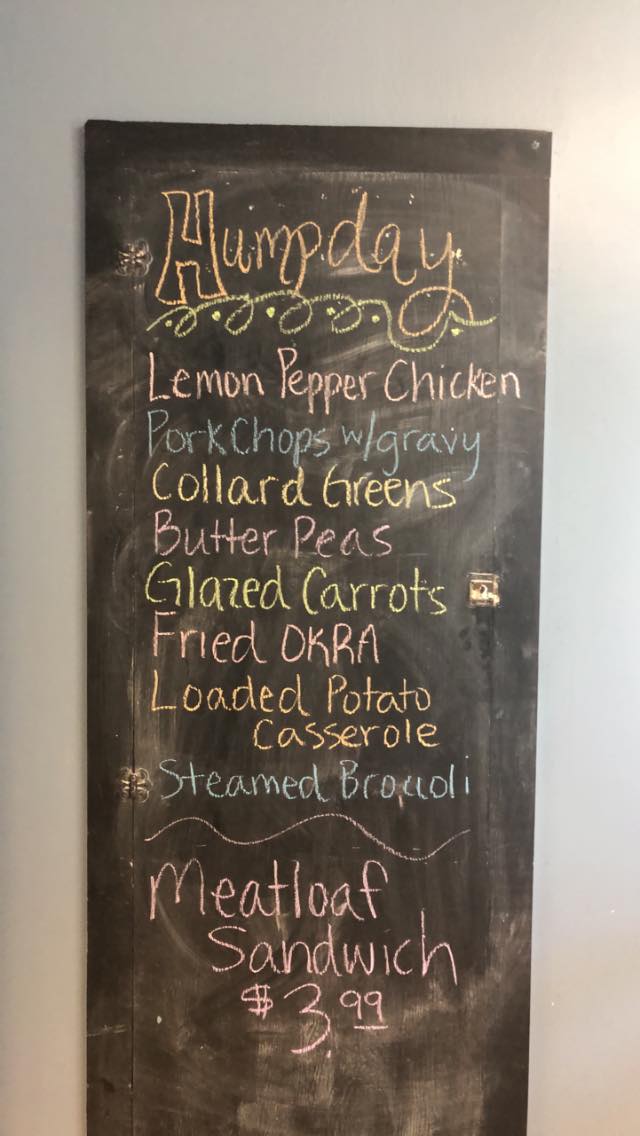 Humpday
Lemon Pepper Chicken
Pork Chops w/gravy
Collard Greens
Butter Peas
Glazed Carrots
Fried OKRA
Loaded Potato
Casserole
Steamed Broccoli
Meatloaf
Sandwich
$3.99